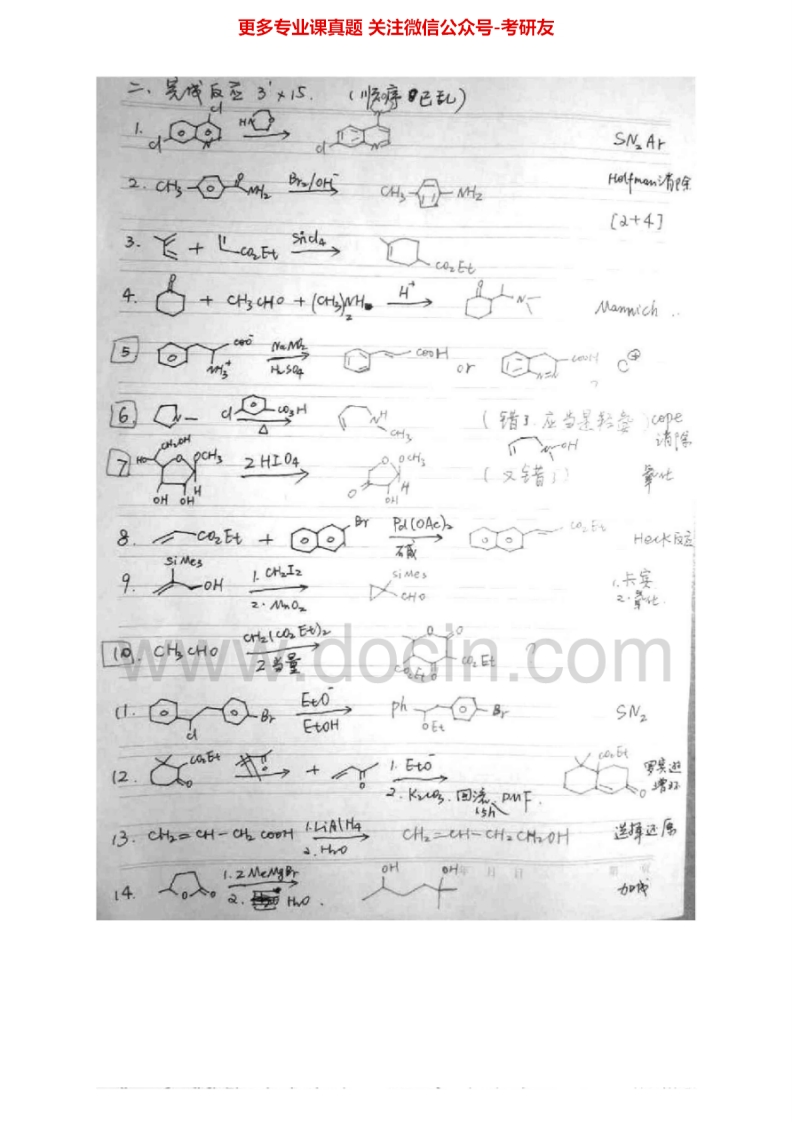 更多专业课真题 关注微信公众号-考研友
二、完成反应 3'×15. (顺序已乱)
1. Cl Cl N HN O Cl N SN2Ar
2. CH3 O NH2 Br2/OH- CH3 NH2 Hoffman消除
[2+4]
3. + CO2Et SnCl4 CO2Et
4. O + CH3CHO + (CH3)2NH H+ O N Mannich
5 COO- NH3+ NaNO2 H2SO4 COOH or COOH N=N ? C+
6 N Cl CO3H Δ N H CH3 (错了,应当是羟胺) cope消除
N-OH
7 HO CH2OH O OCH3 H OH OH 2HIO4 O O OCH3 H OH (又错了) 氧化
8. CO2Et + Br Pd(OAc)2 碱 CO2Et Heck反应
9. SiMe3 OH 1. CH2I2 2. MnO2 SiMe3 CHO 1.卡宾 2.氧化.
10. CH3CHO CH2(CO2Et)2 2当量 O O CO2Et CO2Et O ?
www.docin.com
11. Cl Br EtO- EtOH ph OEt Br SN2
12. CO2Et O + O 1. EtO- 2. K2CO3. 回流 DMF. 15h CO2Et O 罗宾逊增环
13. CH2=CH-CH2COOH 1.LiAlH4 2.H2O CH2=CH-CH2CH2OH 选择还原
年 月 日 第 页
14. O O 1. 2MeMgBr 2. H2O. OH OH 加成